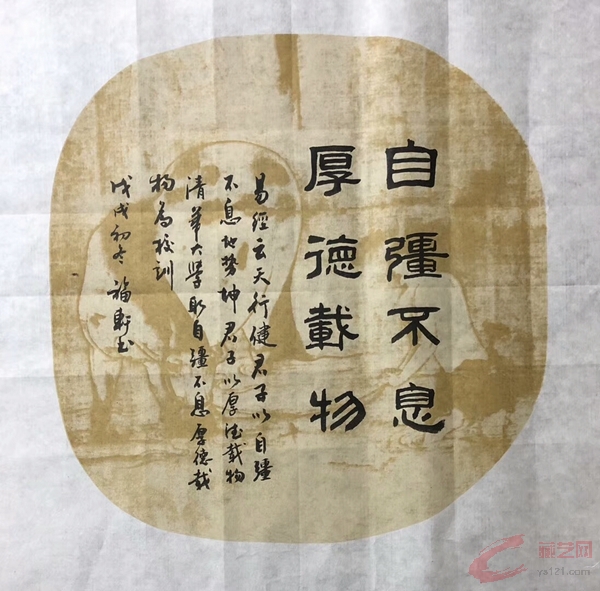 自彊不息
厚德載物
易經云天行健君子以自彊
不息地勢坤君子以厚德載物
清華大學取自彊不息厚德載
物為校訓
戊戌初冬 福軒书
藏艺网
ys121.com